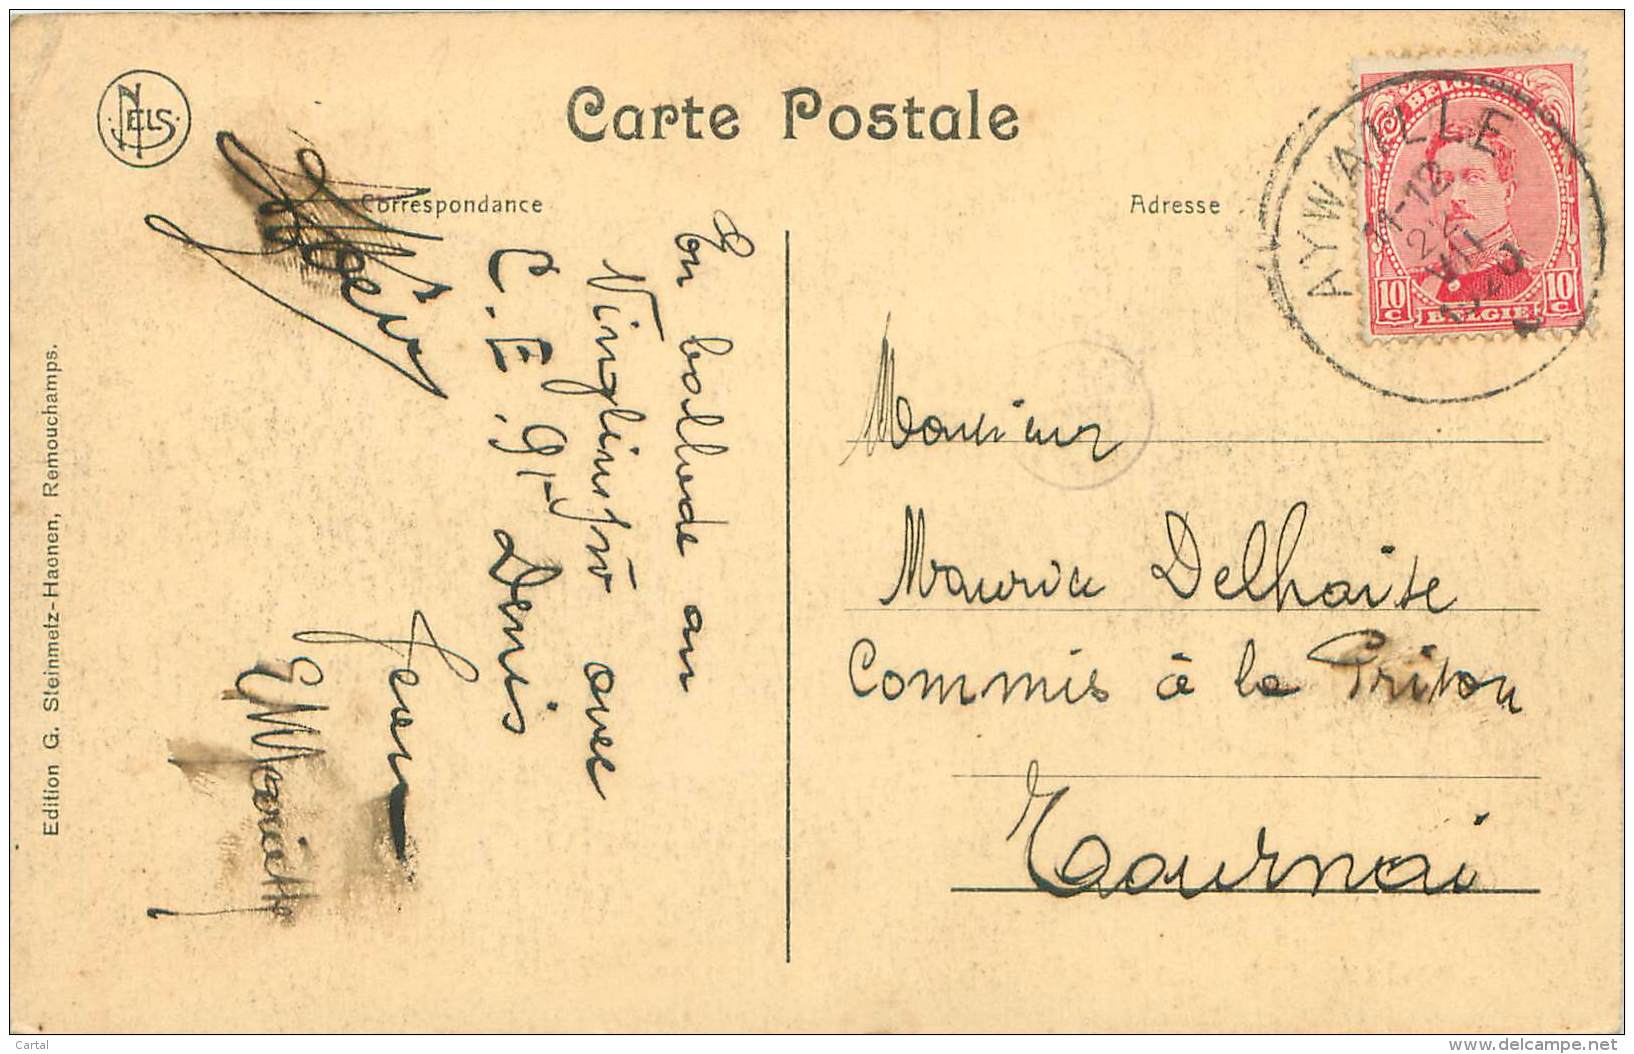 NELS.
Carte Postale
Correspondance
Adresse
BELGIQUE
10 C
10 C
BELGIE
AYWAILLE
11-12
VII
En ballade au
avec
C. E. 9. Denis
Jean
Mariette
Monsieur
Maurice Delhaise
Commis à la Prison
Tournai
Edition G. Steinmetz-Haenen, Remouchamps.
Cartal
delcampe.net